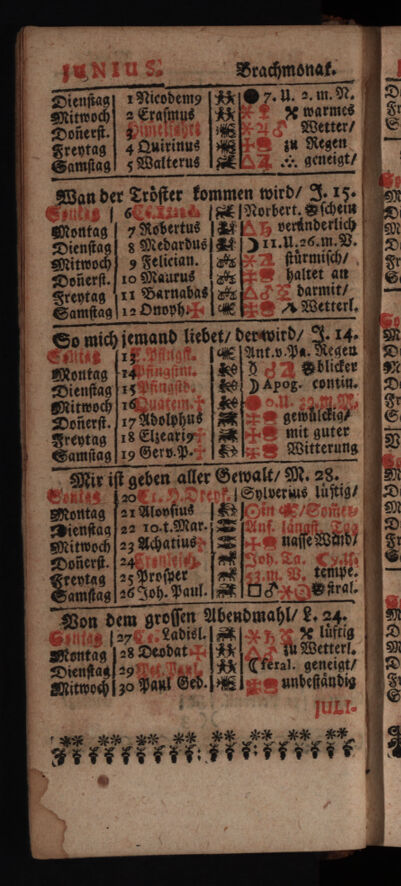 JUNIUS. Brachmonat.
Dienstag 1 Nicodem9 7. U. 2. m. N.
Mitwoch 2 Erasmus warmes
Don̄erst. 3 Himelfahrt Wetter/
Freytag 4 Quirinus zu Regen
Samstag 5 Walterus geneigt/
Wan der Tröster kommen wird/ J. 15.
Sontag 6 Norbert. schein
Montag 7 Robertus veränderlich
Dienstag 8 Medardus 11. U. 26. m. V.
Mitwoch 9 Felician. stürmisch/
Don̄erst. 10 Maurus haltet an
Freytag 11 Barnabas darmit/
Samstag 12 Onoph. Wetterl.
So mich jemand liebet/ der wird/ J. 14.
Sontag 13 Pfingst. Ant. v. Pa. Regen
Montag 14 Pfingstm. blicker
Dienstag 15 Pfingstd. Apog. contin.
Mitwoch 16 Quatem. 0. U. 39. m. N.
Don̄erst. 17 Adolphus gewülckig/
Freytag 18 Elzeari9 mit guter
Samstag 19 Gerv. P. Witterung
Mir ist geben aller Gewalt/ M. 28.
Sontag 20 Er. H. Dreyf. Sylverius lüftig/
Montag 21 Aloysius in Som̄er-
Dienstag 22 10. t. Mar. Anf. längst. Tag
Mitwoch 23 Achatius nasse Wind/
Don̄erst. 24 Fronleich. Joh. Ta.
Freytag 25 Prosper 53. m. V. tempe.
Samstag 26 Joh. Paul. stral.
Von dem grossen Abendmahl/ L. 24.
Sontag 27 Ladisl. lüftig
Montag 28 Deodat zu Wetterl.
Dienstag 29 Pet. Paul. feral. geneigt/
Mitwoch 30 Paul Ged. unbeständig
JULI-